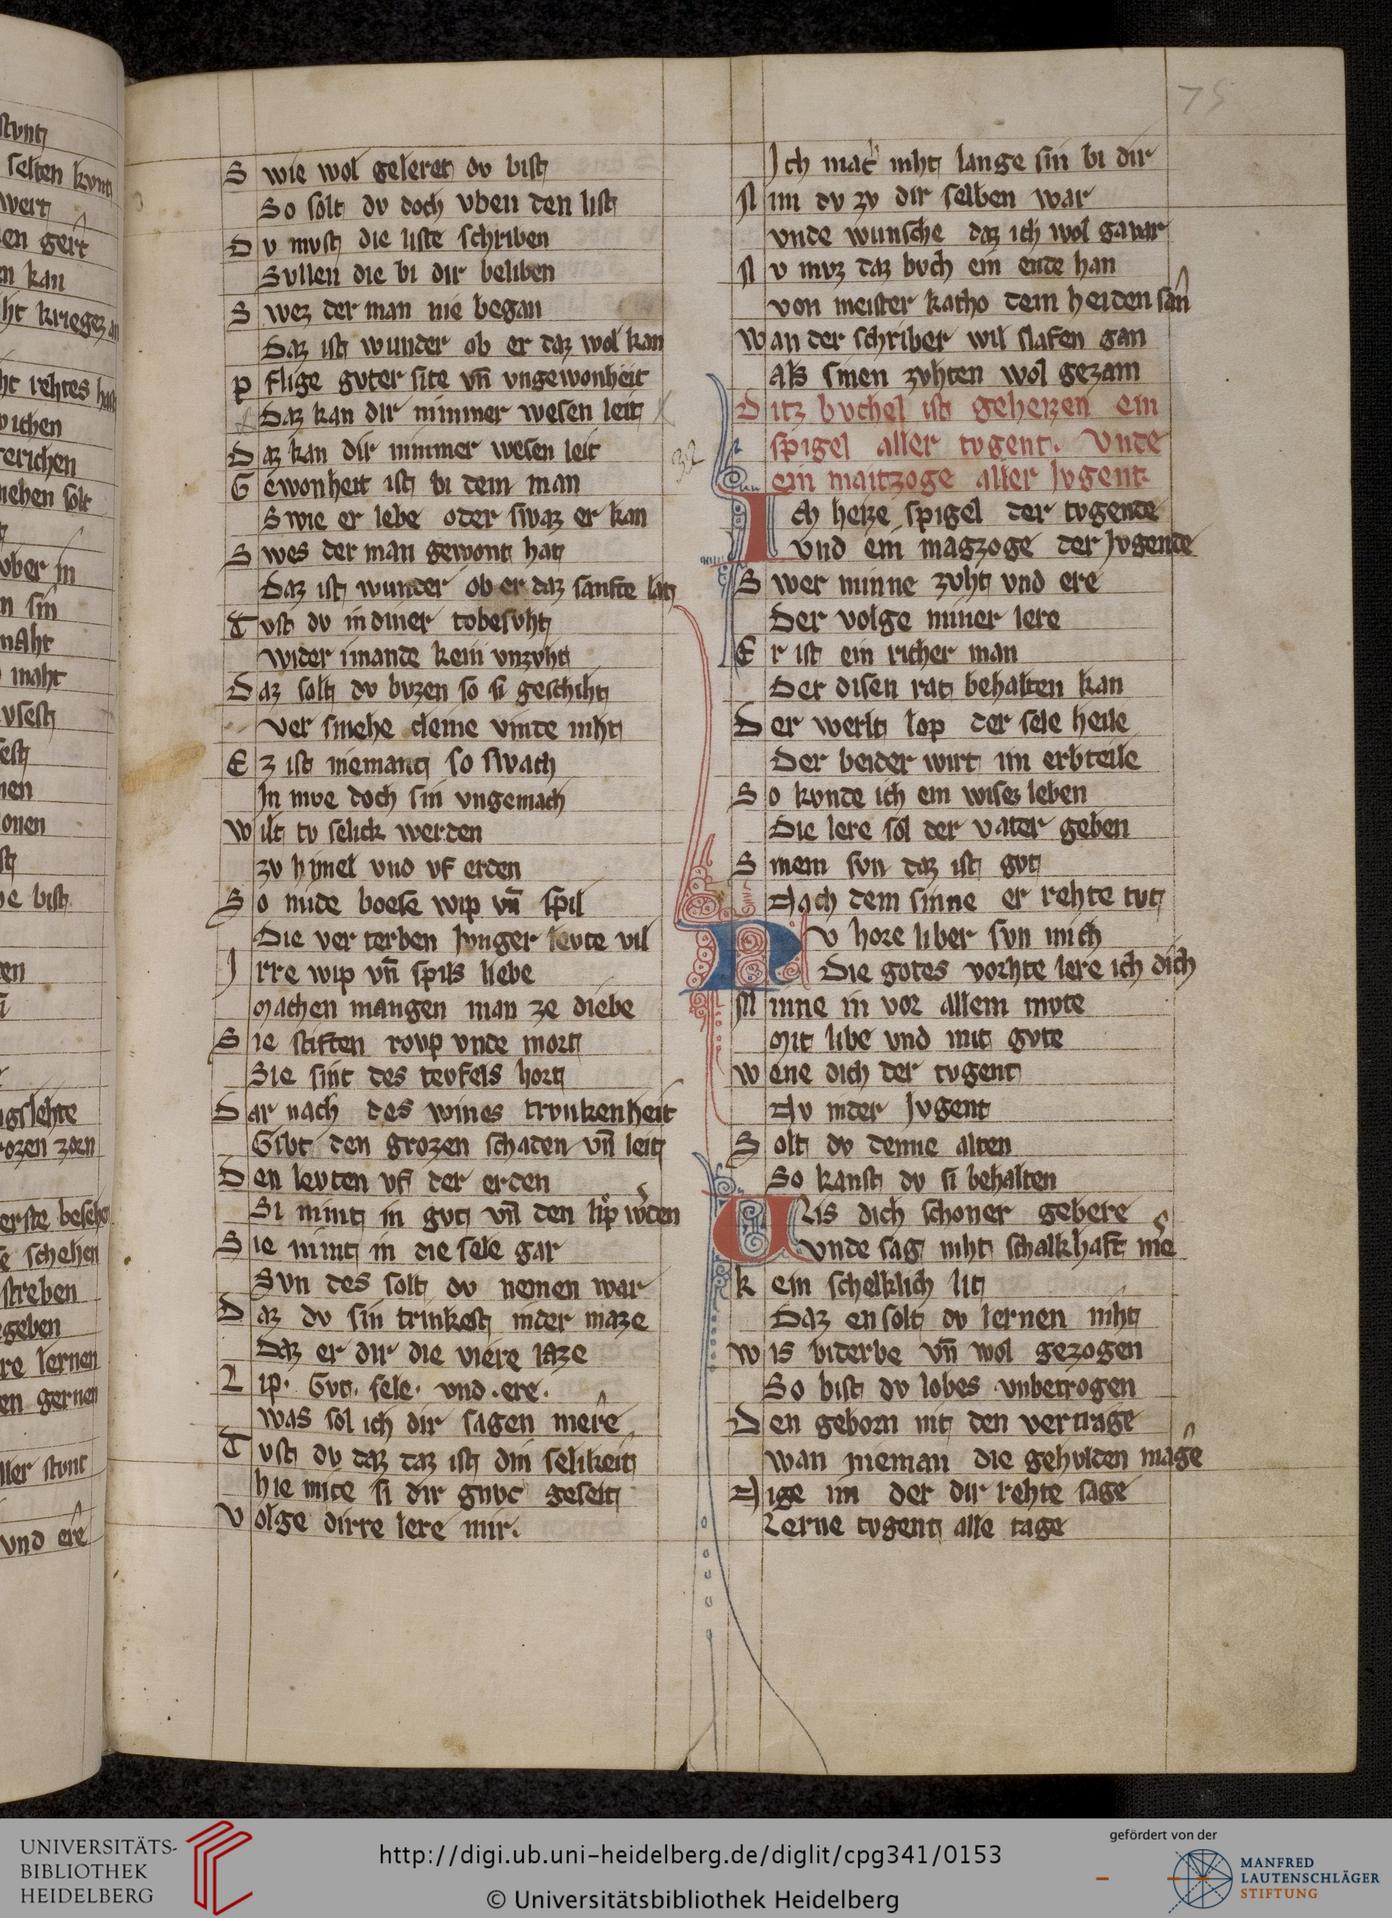 75
S wie wol geleret dv bist
So solt dv doch vben den list
D v mvst die liste schriben
Svllen die bi dir beliben
S wez der man nie began
Daz ist wunder ob er daz wol kan
p flige gvter site vn̄ vngewonheit
Daz kan dir nimmer wesen leit
D az kan dir nimmer wesen leit
G ewonheit ist bi dem man
Swie er lebe oder swaz er kan
S wes der man gewont hat
Daz ist wunder ob er daz sanfte lat
T vst dv in diner tobesvht
Wider imande kein vnzvht
D az solt dv bvzen so si geschiht
Ver smehe cleine vinde niht
E z ist niemant so swach
In mve doch sin vngemach
W ilt tv selick werden
zv hymel vnd vf erden
S o mide boese wip vn̄ spil
Die ver terben Jvnger levte vil
J rre wip vn̄ spils liebe
Machen mangen man ze diebe
S ie stiften rovp vnde mort
Sie sint des tevfels hort
D ar nach des wines trvnkenheit
Gibt den grozen schaden vn̄ leit
D en levten vf der erden
Si nimt in gvt vn̄ den lip w̾den
S ie nimt in die sele gar
Svn des solt dv nemen war
D az dv sin trinkest in der maze
Daz er dir die viere laze
L ip. Gvt. sele. vnd .ere.
Was sol ich dir sagen mere
T vst dv daz daz ist din selikeit
hie mite si dir gnvc geseit
V olge dirre lere mir.
Ich mac niht lange sin bi dir
N im dv zv dir selben war
vnde wunsche daz ich wol gavar
N v mvz daz bvch ein ende han
von meister katho dem heiden san
W an der schriber wil slafen gan
Als sinen zvhten wol gezam
32
D itz bvchel ist geheizen ein
spigel aller tvgent. Vnde
ein maitzoge aller Jvgent.
I ch heize spigel der tvgende
Vnd ein magzoge der Jvgende
S wer minne zvht vnd ere
Der volge miner lere
E r ist ein richer man
Der disen rat behalten kan
D er werlt lop der sele heile
Der beider wirt im erbteile
S o kvnde ich ein wisez leben
Die lere sol der vater geben
S inem svn daz ist gvt
Nach dem sinne er rehte tvt
N v hore liber svn mich
Die gotes vorhte lere ich dich
M inne in vor allem mvte
Mit libe vnd mit gvte
W ene dich der tvgent
Nv in der Jvgent
S olt dv denne alten
So kanst dv si behalten
V lis dich schoner gebere
Vnde sag niht schalkhaft me̾
k ein schelklich lit
Daz en solt dv lernen niht
W is biderbe vn̄ wol gezogen
So bist dv lobes vnbetrogen
D en geborn nit den vertrage
Wan nieman die gehvlden mage
N ige im der dir rehte sage
Lerne tvgent alle tage
UNIVERSITÄTS-
BIBLIOTHEK
HEIDELBERG
http://digi.ub.uni-heidelberg.de/diglit/cpg341/0153
© Universitätsbibliothek Heidelberg
gefördert von der
MANFRED
LAUTENSCHLÄGER
STIFTUNG